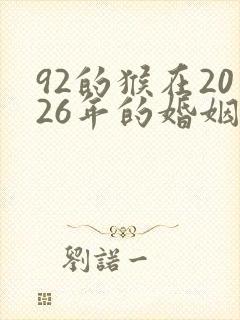 92的猴在20
26年的婚姻
劉諾一